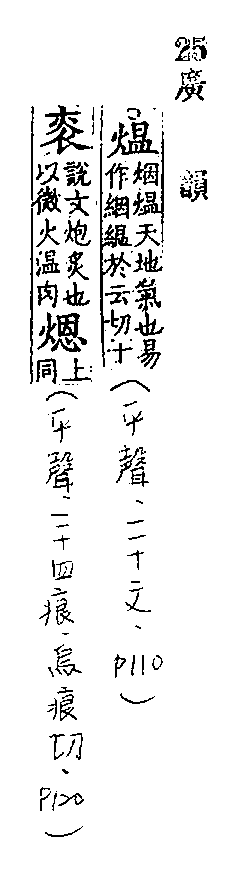 25廣韻
熅烟熅天地氣也易作絪縕於云切十(平聲、二十文、P110)
衮說文炮炙也以微火溫肉煾上同(平聲、二十四痕、烏痕切、P120)